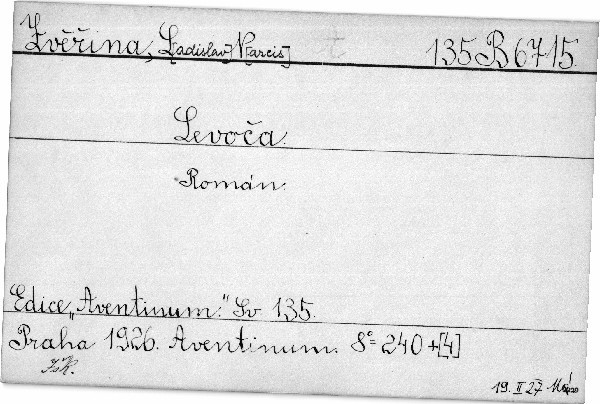 Zvěřina, L[adislav] N[arcis] 135 B 6715.
Levoča.
Román.
Edice „Aventinum." Sv. 135.
Praha 1926. Aventinum. 8° 240 + [4]
19. II 27